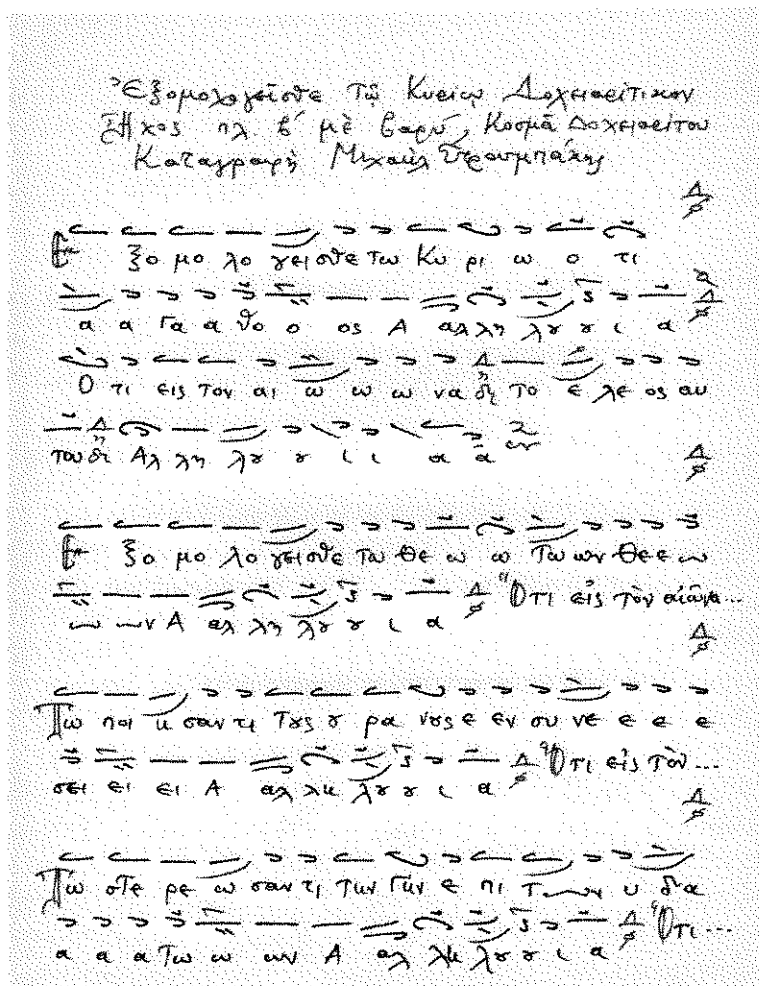 Ἐξομολογεῖσθε Τῷ Κυρίῳ Δοχειαρείτικον
Ἦχος πλ. β´ μὲ βαρύ, Κοσμᾶ Δοχειαρείτου
Καταγραφὴ Μιχαὴλ Στρουμπάκης
Ε ξο μο λο γει σθε Τω Κυ ρι ω ο τι
α α Γα α θο ο ος Α αλ λη λου ου ι α
Ο τι εις τον αι ω ω ω να δη το ε λε ος αυ
του δη Αλ λη λου ου ι ι α α
Ε ξο μο λο γει σθε Τω Θε ω ω Τω ων Θε ε ω
ω ων Α αλ λη λου ου ι α Ὅτι εἰς τὸν αἰῶνα...
Τω ποι η σαν τι Τους ου ρα νους ε εν συ νε ε ε ε
σει ει ει Α αλ λη λου ου ι α Ὅτι εἰς τὸν ...
Τω στε ρε ω σαν τι την Γην ε πι των υ δα
α α α Τω ω ων Α αλ λη λου ου ι α Ὅτι ...